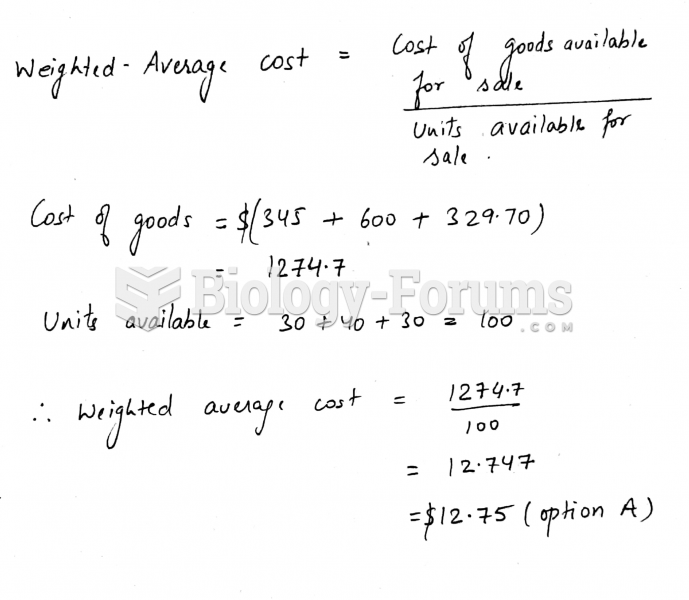 Weighted-Average cost = Cost of goods available
for sale
Units available for
sale.
Cost of goods = $(345 + 600 + 329.70)
= 1274.7
Biology-Forums
.COM
Units available = 30 + 40 + 30 = 100
∴ Weighted average cost = 1274.7
100
= 12.747
= $12.75 (option A)